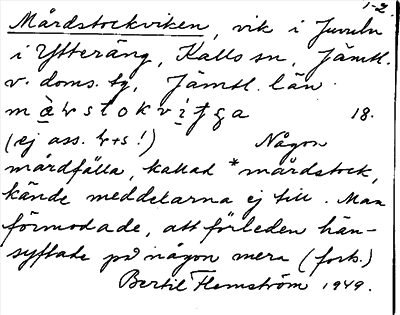 1-2.
Mårdstockviken, vik i Juveln
i Ytteräng, Kalls sn, Jämtl.
v. doms. tg, Jämtl. län.
18.
(ej ass. r+s!) Någon
mårdfälla, kallad *mårdstock,
kände meddelarna ej till. Man
förmodade, att förleden hän-
syftade på någon mera (forts.)
Bertil Flemström 1949.